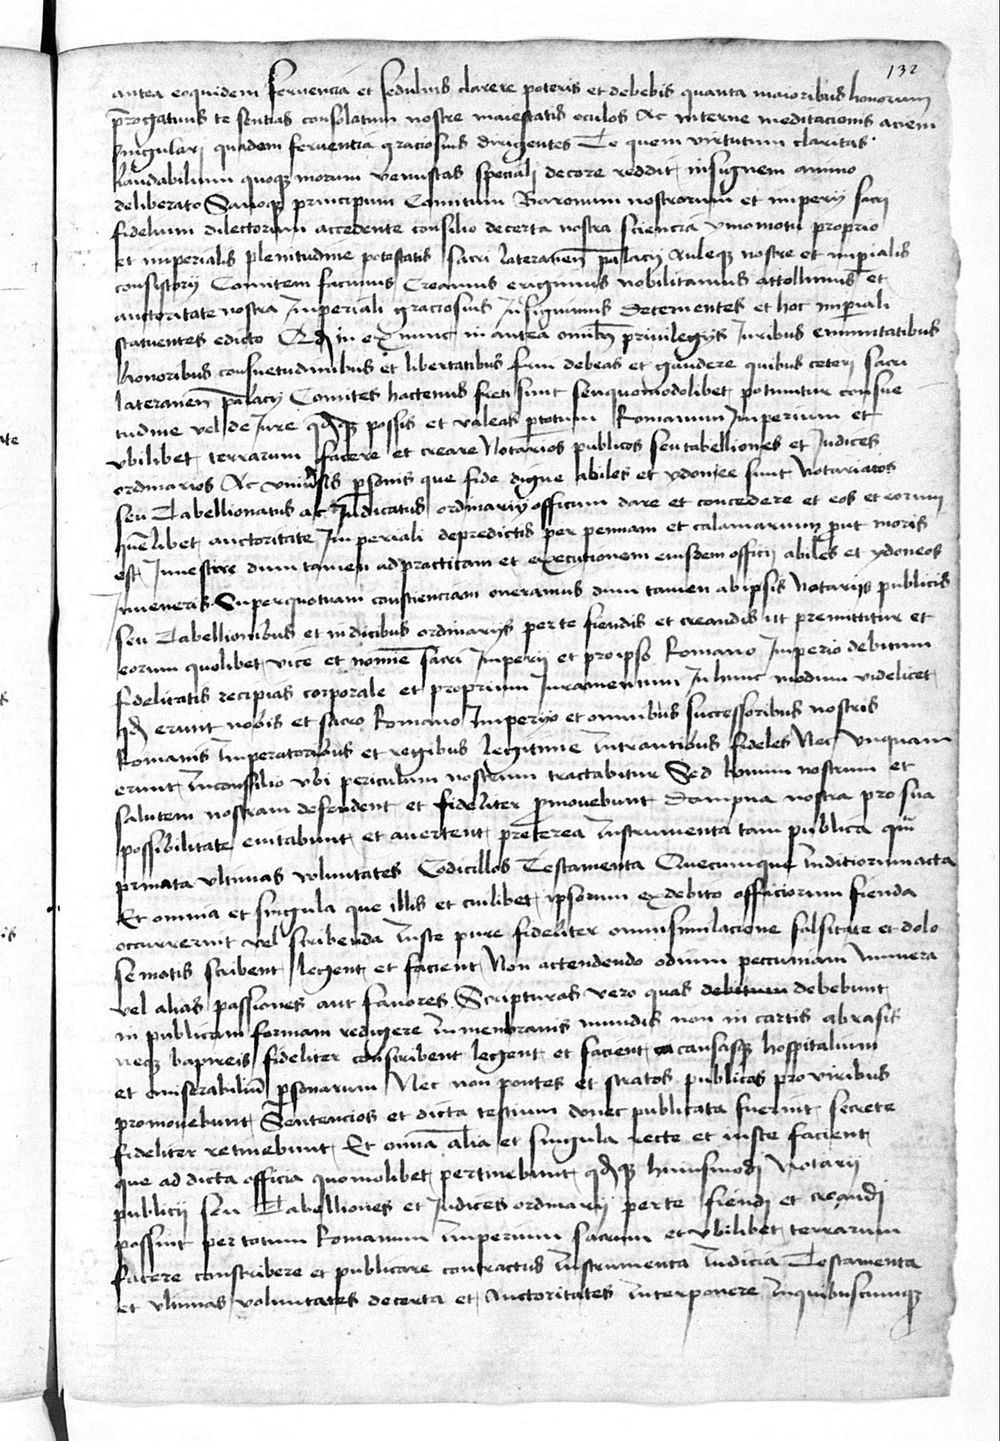 132
antea eoquidem ferventia et sedulius clarere poteris et debebis quanta maioribus honorum
prerogativis te sentias consolatum nostre maiestatis oculos Ac interne meditacionis aciem
singulari quadem ferventia graciosius dirigentes Te quem virtutum claritas
laudabilium quoque morum venustas speciali decore reddit insignem animo
deliberato Sanoque principum Comitum Baronum nostrorum et imperij sacri
fidelium dilectorum accedente consilio de certa nostra sciencia vnomotu proprio
et imperialis plenitudine potestatis sacri lateranen palacij Auleque nostre et imperialis
consistorij Comitem facimus Creamus erigimus nobilitamus attollimus et
auctoritate nostra Imperiali graciosius Insignimus Decernentes et hoc imperiali
statuentes edicto Qd tu ex nunc in antea omnibus privilegijs Iuribus emunitatibus
honoribus consuetudinibus et libertatibus frui debeas et gaudere quibus ceteri sacri
lateranen palacij Comites hactenus freti sunt seu quomodolibet potiuntur consue
tudine vel de Iure qdque possis et valeas per totum Romanum Imperium et
vbilibet terrarum facere et creare Notarios publicos seu tabelliones et Iudices
ordinarios Ac vniversis personis que fide digne abiles et ydonee sunt Notariatos
seu Tabellionatus ac Iudicatus ordinarij officium dare et concedere et eos et eorum
quelibet auctoritate Imperiali de predictis per pennam et calamarium prout moris
est Investire dum tamen ad practicam et executionem eiusdem officij abiles et ydoneos
Inveneris Super quo tuam conscienciam oneramus dum tamen ab ipsis Notarijs publicis
seu Tabellionibus et iudicibus ordinarijs per te fiendis et creandis ut premittitur et
eorum quolibet vice et nomine sacri Imperij et pro ipso Romano Imperio debitum
fidelitatis recipias corporale et proprium Iuramentum In hunc modum videlicet
qd erunt nobis et sacro Romano Imperijo et omnibus successoribus nostris
Romanis Imperatoribus et regibus legitime Intrantibus fideles Nec vnquam
erunt In consilio vbi periculum nostrum tractabitur Sed bonum nostrum et
salutem nostram defendent et fideliter promovebunt Dampna nostra pro sua
possibilitate evitabunt et avertent preterea Instrumenta tam publica qm
privata vltimas voluntates Codicillos Testamenta Quecumque Iuditiorum acta
Et omnia et singula que illis et cuilibet ipsorum ex debito officiorum fienda
occurrerint vel scribenda Iuste pure fideliter omni simulacione falsitate et dolo
semotis scribent legent et facient Non attendendo odium peccuniam munera
vel alias passiones aut favores Scripturas vero quas debitum debebunt
in publicam formam redigere In menbranis mundis non in cartis abrasis
neque bapireis fideliter conscribent legent et facient causasque hospitalium
et miserabilium personarum Nec non pontes et stratos publicas pro viribus
promovebunt Sentencios et dicta testium donec publicata fuerint secrete
fideliter retinebunt Et omnia alia et singula recte et iuste facient
que ad dicta officia quomolibet pertinebunt qdque huiusmodi Notarij
publicij seu Tabelliones et Iudices ordinarij per te fiendi et creandi
possint per totum Romanum Imperium sacrum et vbilibet terrarum
facere conscribere et publicare contractus Instrumenta Iudicia Testamenta
et vltimas voluntates decerta et Auctoritates Interponere In quibuscumque